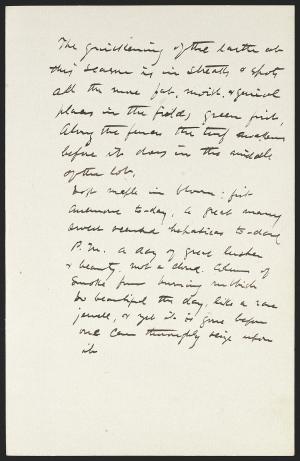 The quickening of the earth at
this season is in streaks & spots
all the more fat, moist, & genial
places in the fields, green first,
Along the fences the turf awakens
before it does in the middle
of the lot.
Soft maple in bloom; first
anemone to-day, a great many
sweet scented hepaticas to-day
P.M. a day of great
& beauty, not a cloud. of
smoke from burning rubbish
So beautiful the day, like a rare
jewel, & yet it is gone before
one can thoroughly seize upon
it